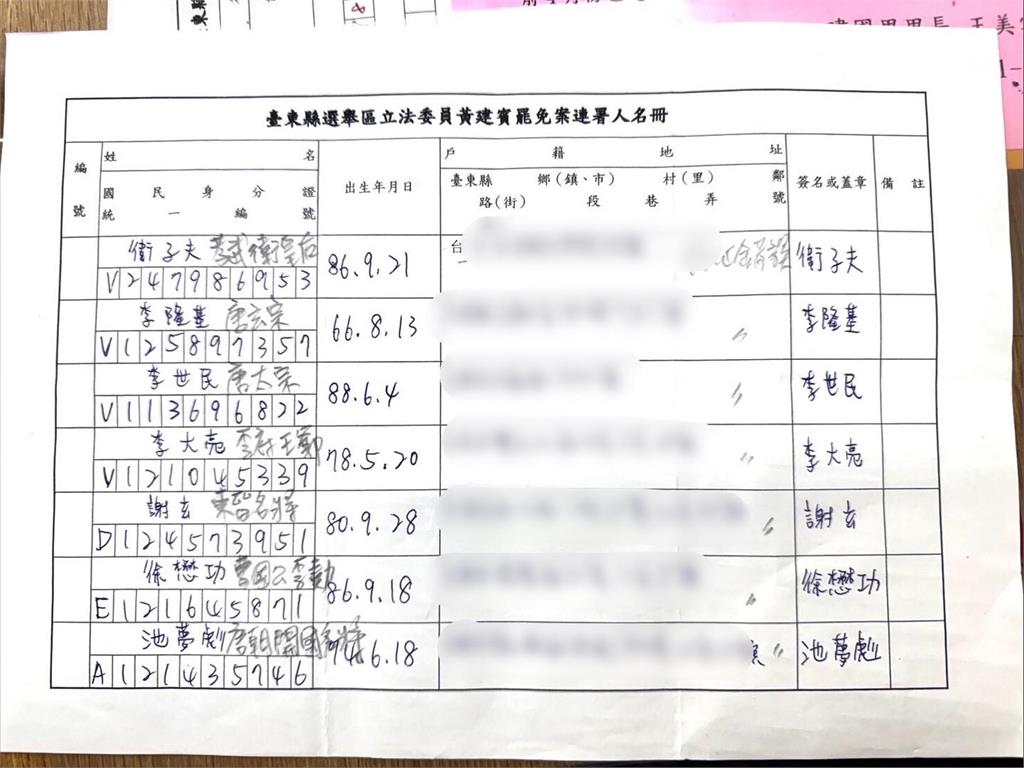 臺東縣選舉區立法委員黃建賓罷免案連署人名冊
編號 姓名 戶籍地址 簽名或蓋章 備註
國民身分證統一編號 出生年月日 臺東縣 鄉(鎮、市) 村(里) 鄰
路(街) 段 巷 弄 號
衛子夫 孝武衛皇后 86.9.21 台 衛子夫
V247986953
李隆基 唐玄宗 66.8.13 〃 李隆基
V125897357
李世民 唐太宗 88.6.4 〃 李世民
V113696822
李大亮 78.5.20 〃 李大亮
V121045339
謝玄 東晉名將 80.9.28 〃 謝玄
D124573951
徐懋功 曹國公李勣 86.9.18 〃 徐懋功
E121645871
池夢劇 唐朝開國名將 74.6.18 〃 池夢劇
A121435746